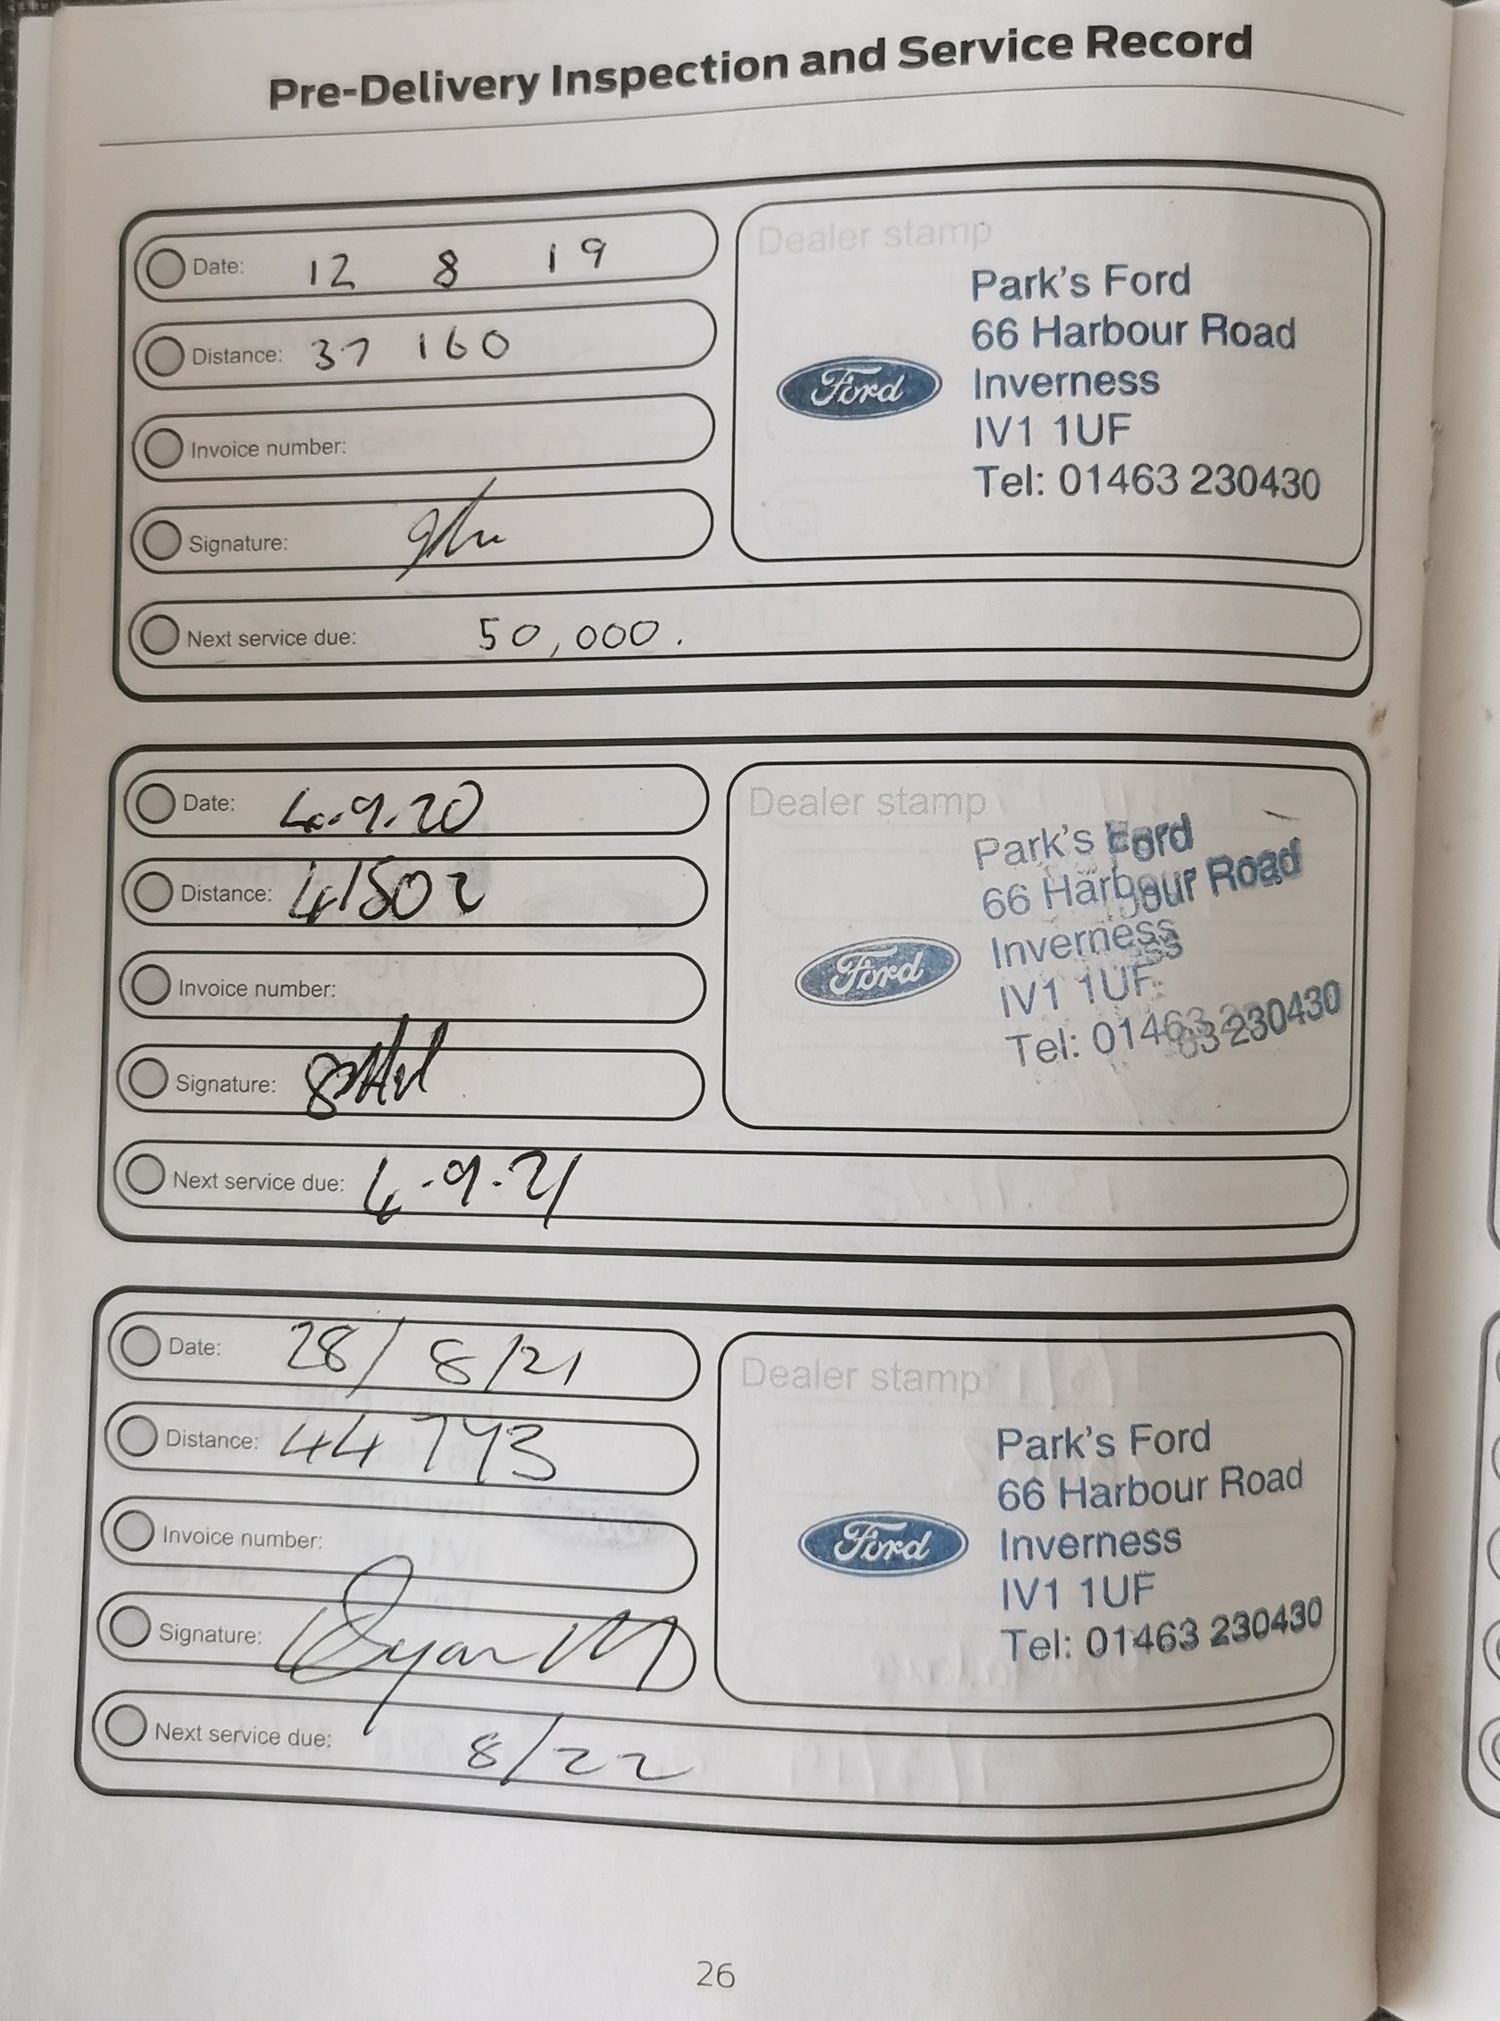 Pre-Delivery Inspection and Service Record
Date: 12 8 19
Distance: 37 160
Invoice number:
Signature:
Next service due: 50,000.
Dealer stamp
Ford
Park's Ford
66 Harbour Road
Inverness
IV1 1UF
Tel: 01463 230430
Date: 4.9.20
Distance: 41502
Invoice number:
Signature:
Next service due: 4.9.21
Dealer stamp
Ford
Park's Ford
66 Harbour Road
Inverness
IV1 1UF
Tel: 01463 230430
Date: 28/8/21
Distance: 44743
Invoice number:
Signature: Ryan M
Next service due: 8/22
Dealer stamp
Ford
Park's Ford
66 Harbour Road
Inverness
IV1 1UF
Tel: 01463 230430
26